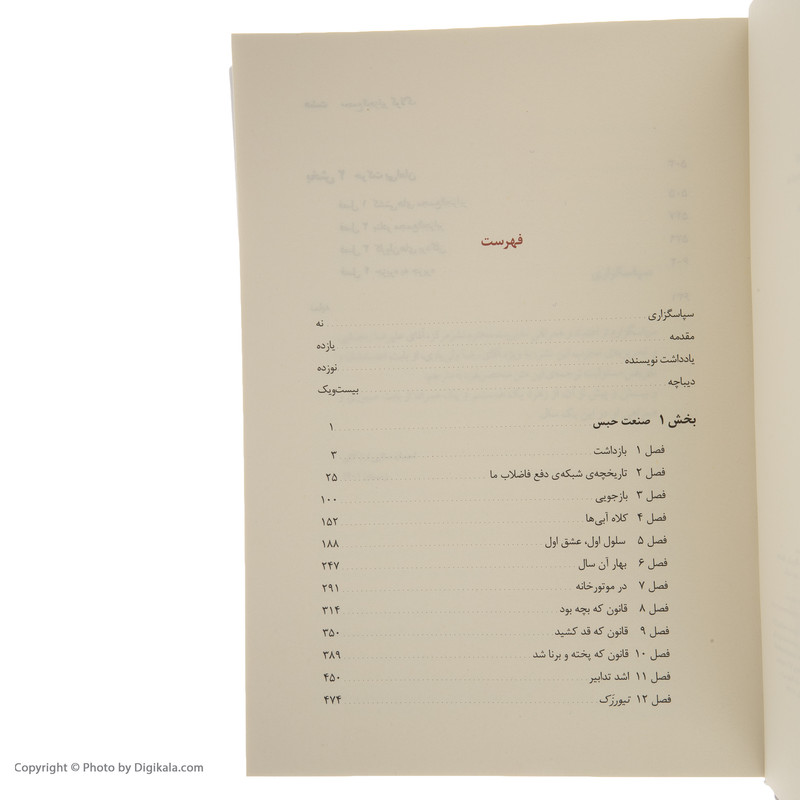 فهرست
سپاسگزاری نه
مقدمه یازده
یادداشت نویسنده نوزده
دیباچه بیست‌ویک
بخش ۱ صنعت حبس ۱
فصل ۱ بازداشت ۳
فصل ۲ تاریخچه‌ی شبکه‌ی دفع فاضلاب ما ۲۵
فصل ۳ بازجویی ۱۰۰
فصل ۴ کلاه آبی‌ها ۱۵۲
فصل ۵ سلول اول، عشق اول ۱۸۸
فصل ۶ بهار آن سال ۲۴۷
فصل ۷ در موتورخانه ۲۹۱
فصل ۸ قانون که بچه بود ۳۱۴
فصل ۹ قانون که قد کشید ۳۵۰
فصل ۱۰ قانون که پخته و برنا شد ۳۸۹
فصل ۱۱ اشد تدابیر ۴۵۰
فصل ۱۲ تیورزک ۴۷۴
Copyright © Photo by Digikala.com